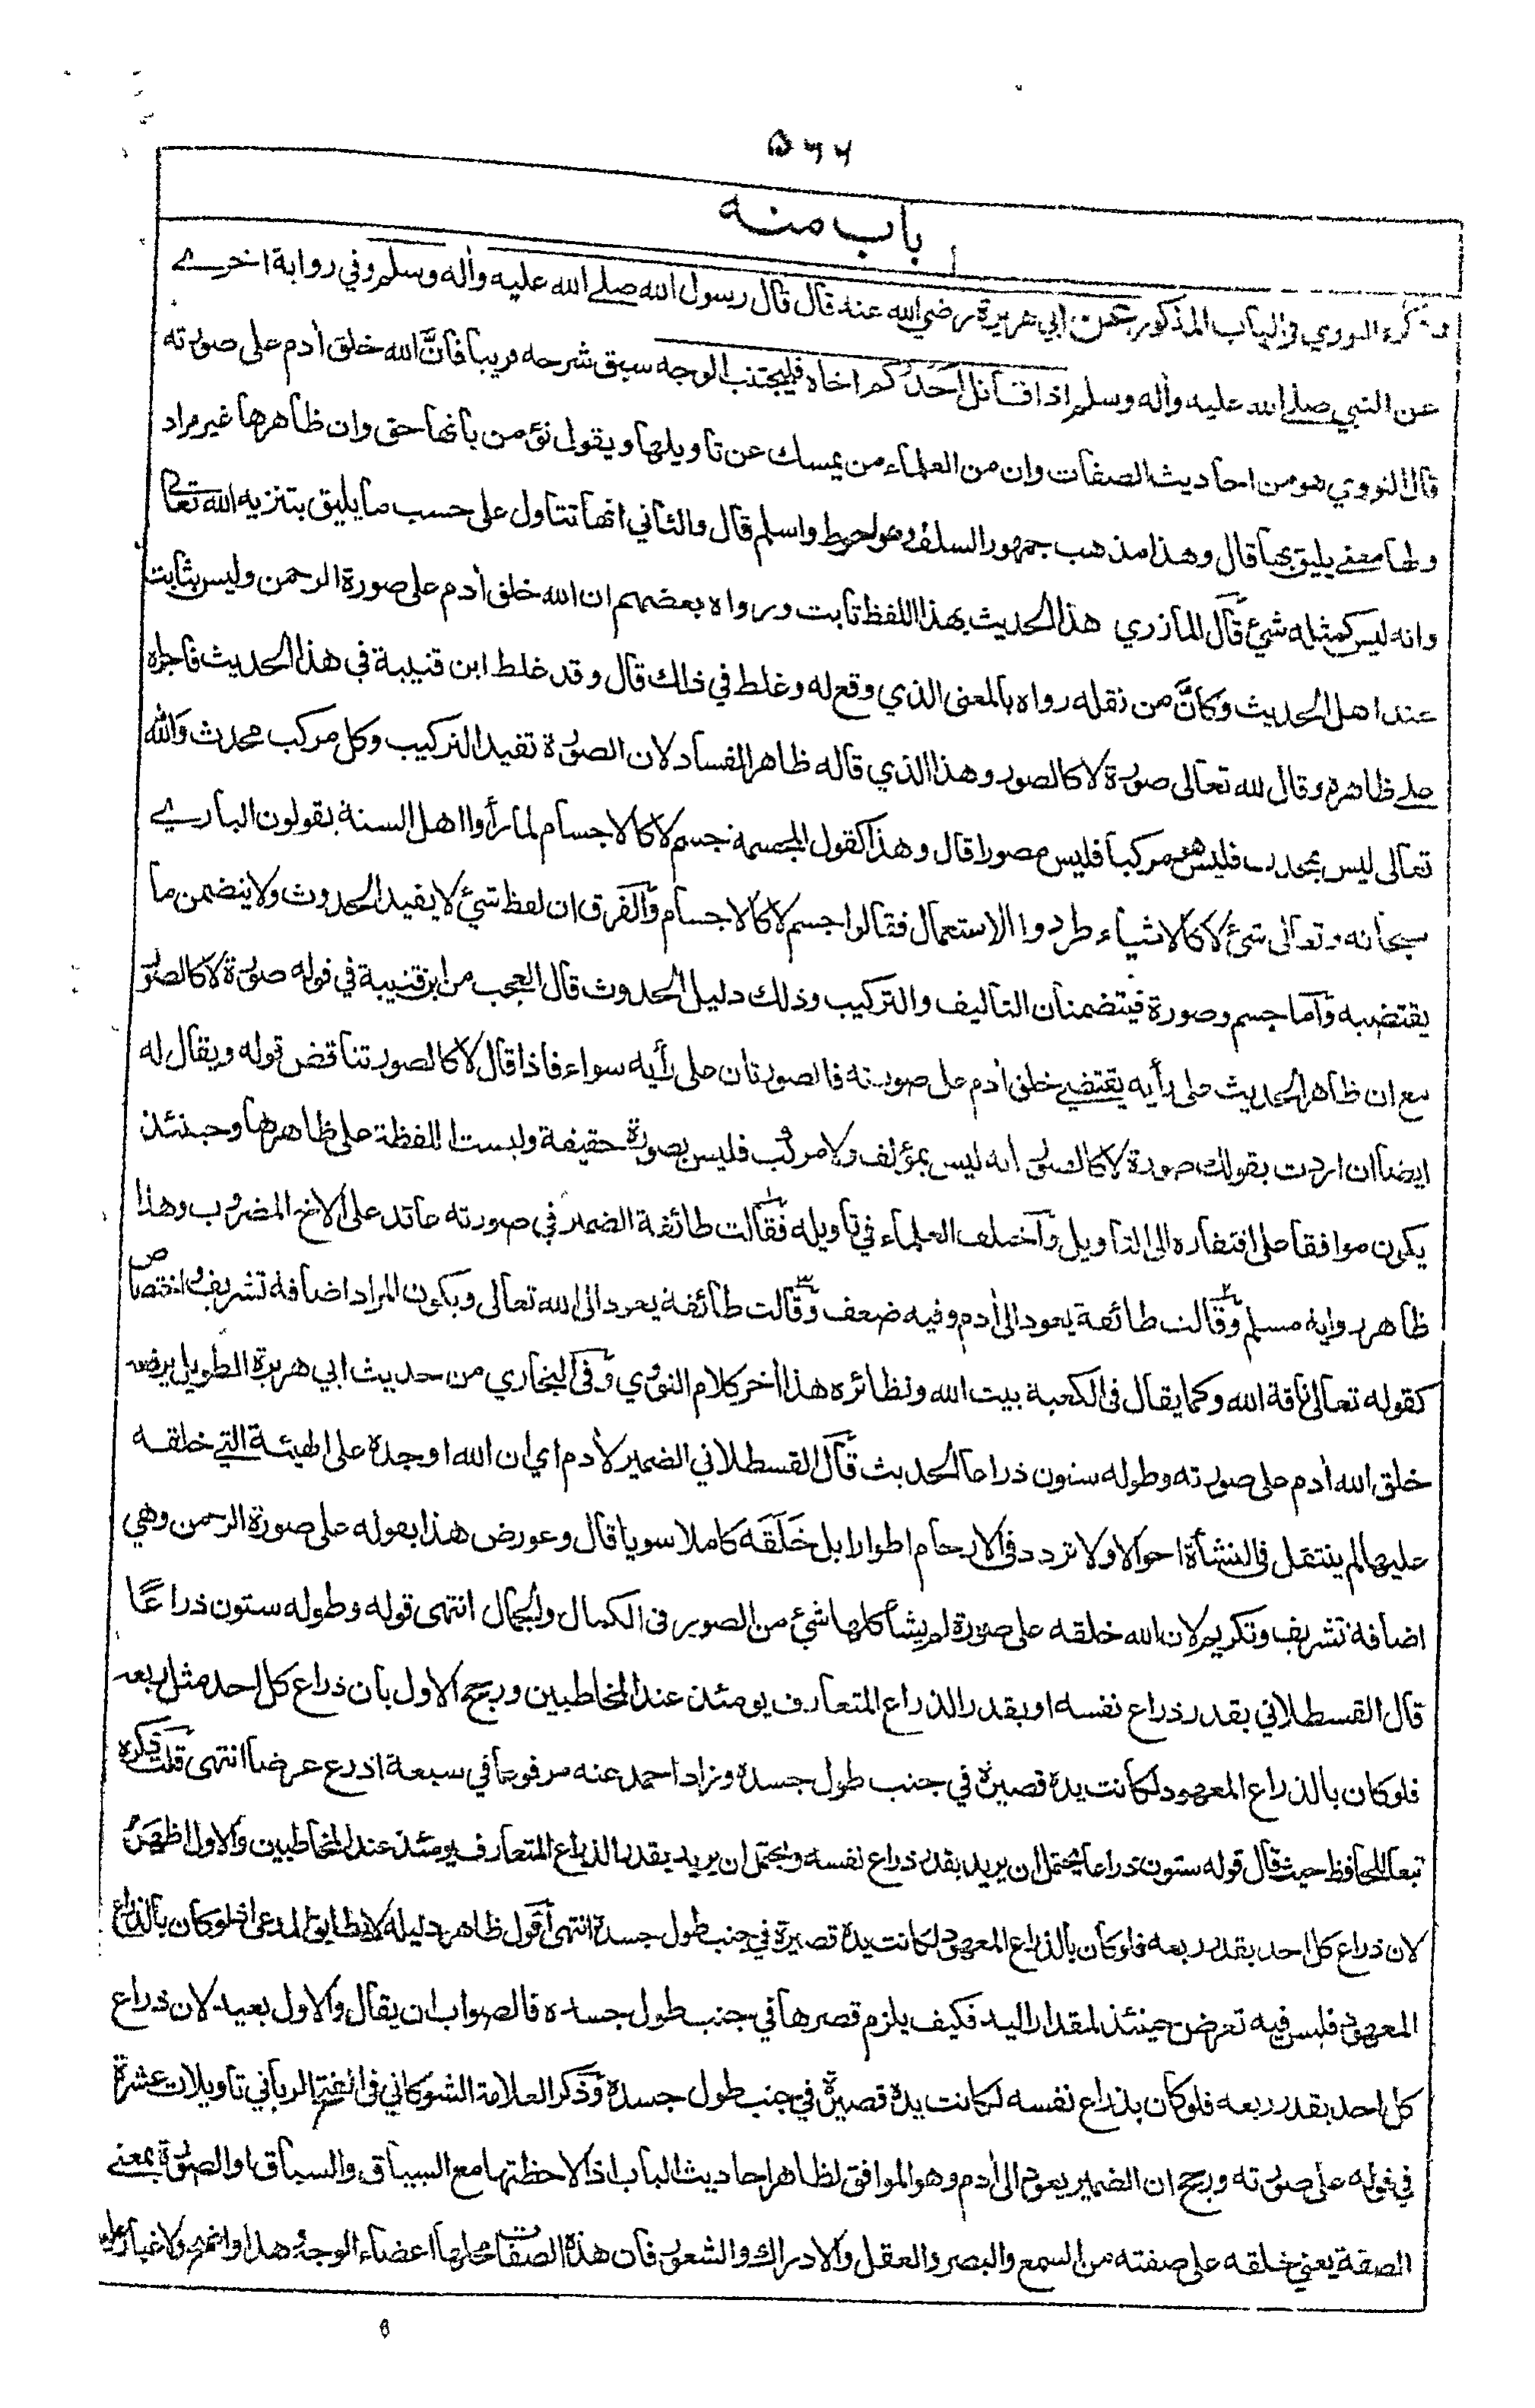 ۵۶۶
باب منه
ذكره النووي في الباب المذكور عن أبي هريرة رضي الله عنه قال قال رسول الله صلے الله عليه واٰله وسلم وفي رواية اخرے
عن النبي صلے الله عليه واٰله وسلم اذا قاتل أحَدُكُم اخاه فليجتنب الوجه سبق شرحه قريبا فانَّ الله خلق اٰدم على صورته
قال النووي هو من احاديث الصفات وان من العلماء من يمسك عن تاويلها ويقول نؤمن بانها حق وان ظاهرها غير مراد
ولها معنے يليق بها قال وهذا مذهب جمهور السلف وهو احوط واسلم قال والثاني انها تتاول على حسب ما يليق بتنزيه الله تعالے
وانه ليس كمثله شيء قال المازري هذا الحديث بهذا اللفظ ثابت ورواه بعضهم ان الله خلق اٰدم على صورة الرحمن وليس بثابت
عند اهل الحديث وكانَّ من نقله رواه بالمعنى الذي وقع له وغلط في ذلك قال وقد غلط ابن قتيبة في هذا الحديث فاجراه
على ظاهره وقال لله تعالى صورة لا كالصور وهذا الذي قاله ظاهر الفساد لان الصورة تفيد التركيب وكل مركب محدث والله
تعالى ليس بمحدث فليس هو مركبا فليس مصورا قال وهذا كقول المجسمة جسم لا كالاجسام لما رأوا اهل السنة يقولون البارے
سبحانه وتعالى شئ لا كالاشياء طردوا الاستعمال فقالوا جسم لا كالاجسام والفرق ان لفظ شئ لا يفيد الحدوث ولا يتضمن ما
يقتضيه واما جسم وصورة فيتضمنان التاليف والتركيب وذلك دليل الحدوث قال العجب من ابن قتيبة في قوله صورة لا كالصور
مع ان ظاهر الحديث على رأيه يقتضے خلق اٰدم على صورته فالصورتان على رأيه سواء فاذا قال لا كالصور تناقض قوله ويقال له
ايضا ان اردت بقولك صورة لا كالصور انه ليس بمؤلف ولا مركب فليس بصورة حقيقة وليست اللفظة على ظاهرها وحينئذ
يكون موافقا على افتقاره الى التاويل واختلف العلماء في تاويله فقالت طائفة الضمير في صورته عائد على الاخ المضروب وهذا
ظاهر رواية مسلم وقالت طائفة يعود الى اٰدم وفيه ضعف وقالت طائفة يعود الى الله تعالى ويكون المراد اضافة تشريف واختصاص
كقوله تعالى ناقة الله وكما يقال في الكعبة بيت الله ونظائره هذا اٰخر كلام النووي وفي البخاري من حديث ابي هريرة الطويل يرفعه
خلق الله اٰدم على صورته وطوله ستون ذراعا الحديث قال القسطلاني الضمير لاٰدم اي ان الله اوجده على الهيئة التي خلقه
عليها لم ينتقل في النشأة احوالا ولا تردد في الارحام اطوارا بل خَلَقَه كاملا سويا قال وعورض هذا بقوله على صورة الرحمن وهي
اضافة تشريف وتكريم لان الله خلقه على صورة لم يشاكلها شئ من الصور في الكمال والجمال انتهى قوله وطوله ستون ذراعًا
قال القسطلاني بقدر ذراع نفسه او بقدر الذراع المتعارف يومئذ عند المخاطبين ورجح الاول بان ذراع كل احد مثل ربعه
فلو كان بالذراع المعهود لكانت يده قصيرة في جنب طول جسده وزاد احمد عنه مرفوعا في سبعة اذرع عرضا انتهى قلت ذكره
تبعا للحافظ حيث قال قوله ستون ذراعا يحتمل ان يريد بقدر ذراع نفسه ويحتمل ان يريد بقدر الذراع المتعارف يومئذ عند المخاطبين والاول اظهر
لان ذراع كل احد بقدر ربعه فلو كان بالذراع المعهود لكانت يده قصيرة في جنب طول جسده انتهى اقول ظاهر دليله لا يطابق المدعى اذ لو كان بالذراع
المعهود فليس فيه تعرض حينئذ لمقدار اليد فكيف يلزم قصرها في جنب طول جسده فالصواب ان يقال والاول بعيد لان ذراع
كل احد بقدر ربعه فلو كان بذراع نفسه لكانت يده قصيرة في جنب طول جسده وذكر العلامة الشوكاني في الفتح الرباني تاويلات عشرة
في قوله على صورته ورجح ان الضمير يعود الى اٰدم وهو الموافق لظاهر احاديث الباب اذا لاحظتها مع السياق والسباق او الصورة بمعنے
الصفة يعني خلقه على صفته من السمع والبصر والعقل والادراك والشعور فان هذه الصفات محلها اعضاء الوجه هذا واضح ولا غبار عليه